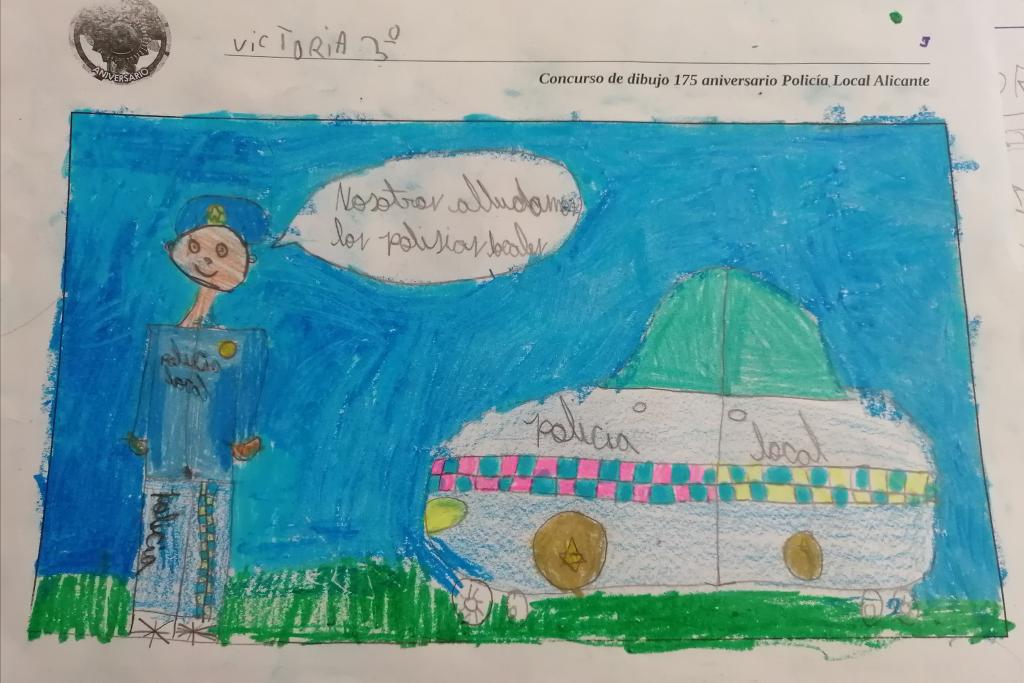 ANIVERSARIO
VICTORIA 3º
Concurso de dibujo 175 aniversario Policía Local Alicante
Nosotros alludamos
los polisias locales
policia
local
policia
local
policia
2